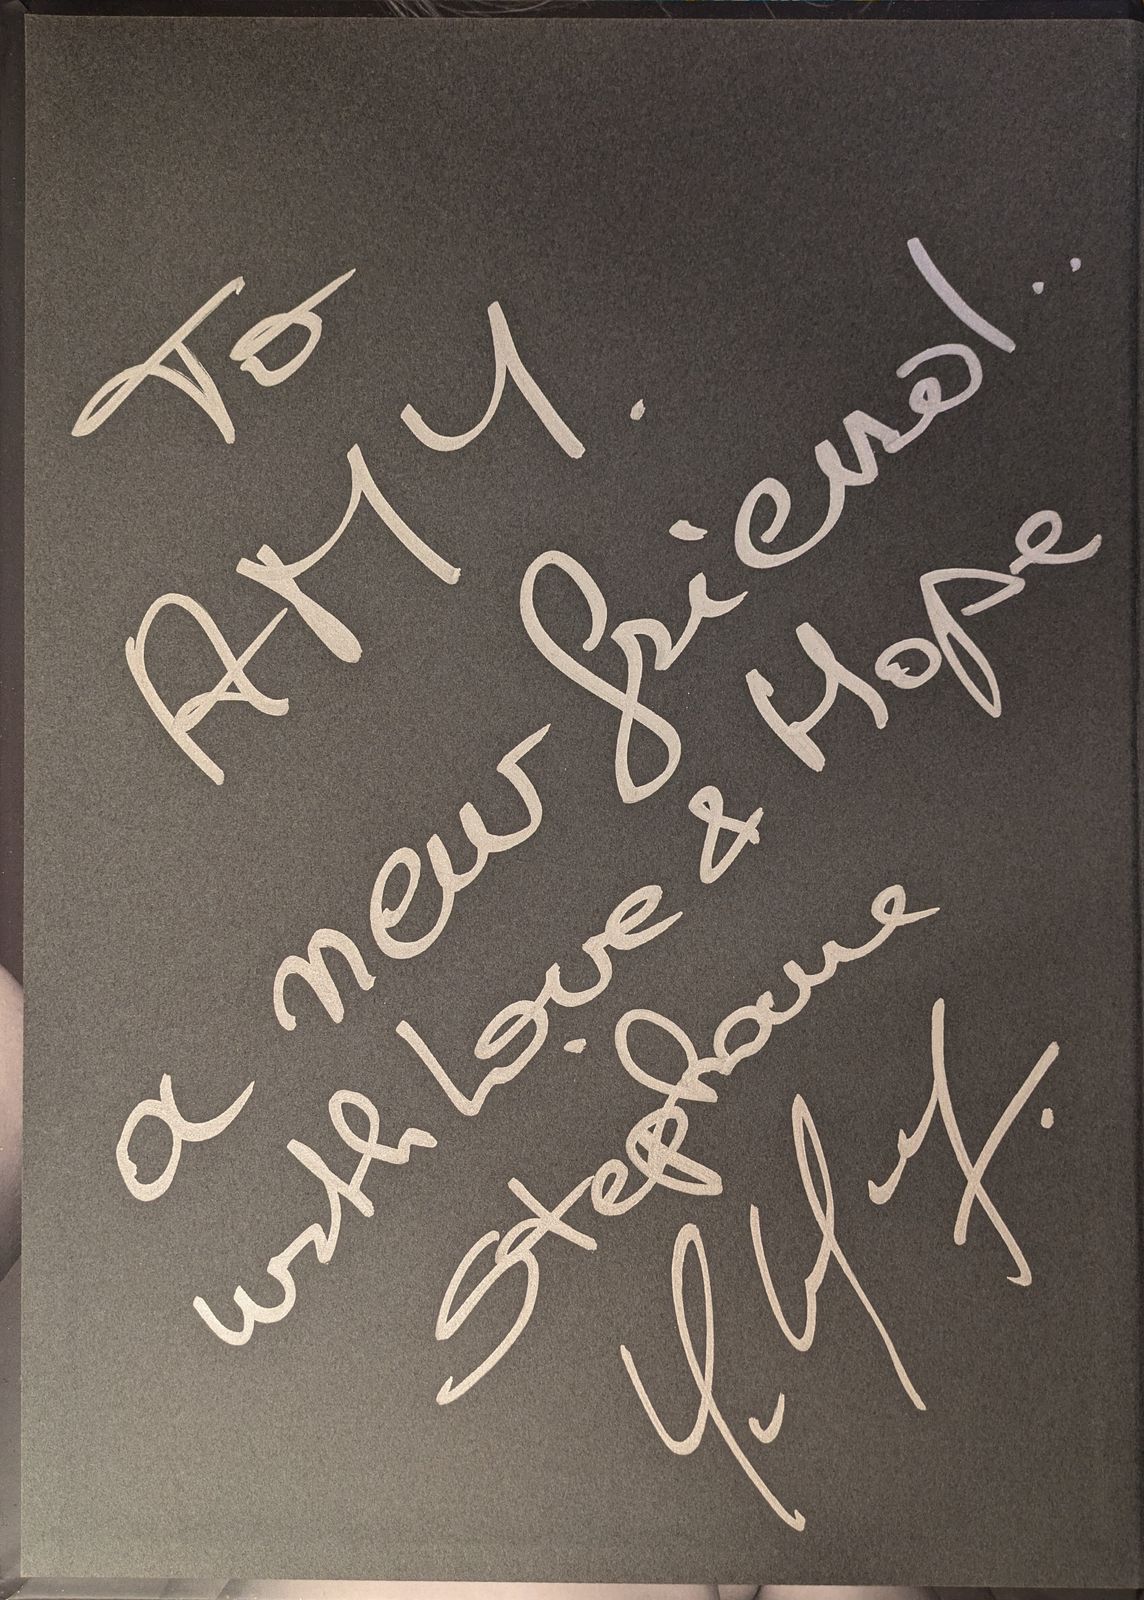 To
AMY.
a new friend...
with Love & Hope
Stephane